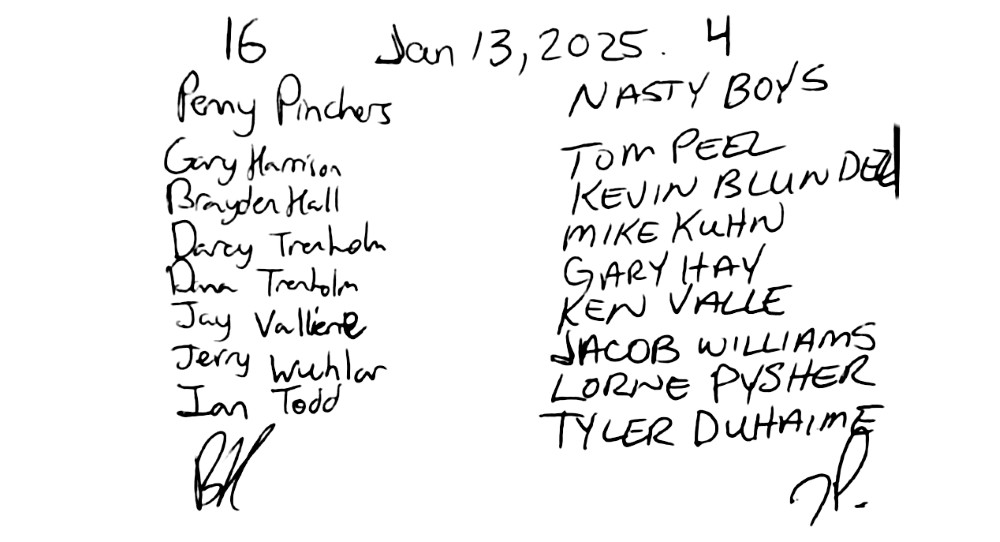 16 Jan 13, 2025. 4
Penny Pinchers
Gary Harrison
Brayden Hall
Darcy Trenholm
Dina Trenholm
Jay Valliere
Jerry Wuhlar
Ian Todd
BH
NASTY BOYS
TOM PEEL
KEVIN BLUNDELL
MIKE KUHN
GARY HAY
KEN VALLE
JACOB WILLIAMS
LORNE PYSHER
TYLER DUHAIME
TP.